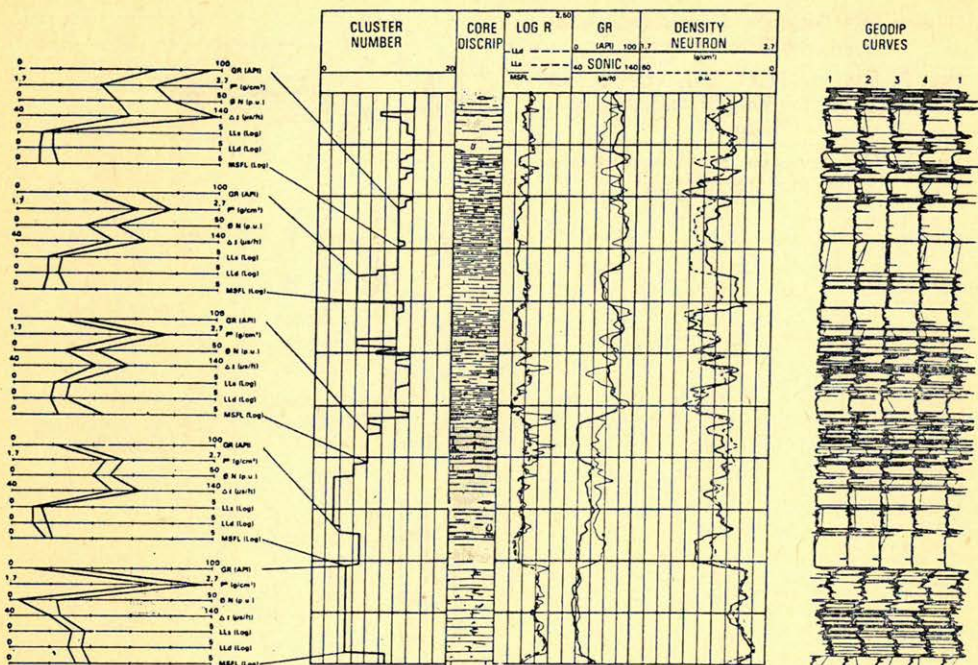 CLUSTER NUMBER
0 20
CORE DISCRIP
LOG R
0 2,50
LLd
LLs
MSFL
GR
0 (API) 100
SONIC
40 140
(µs/ft)
DENSITY NEUTRON
1.7 2.7
(g/cm³)
60 0
p.u.
GEODIP CURVES
1 2 3 4 1
0 100 GR (API)
1.7 2.7 (g/cm³)
0 50 Ø N (p.u.)
40 140 Δt (µs/ft)
0 5 LLs (Log)
0 5 LLd (Log)
0 5 MSFL (Log)
0 100 GR (API)
1.7 2.7 (g/cm³)
0 50 Ø N (p.u.)
40 140 Δt (µs/ft)
0 5 LLs (Log)
0 5 LLd (Log)
0 5 MSFL (Log)
0 100 GR (API)
1.7 2.7 (g/cm³)
0 50 Ø N (p.u.)
40 140 Δt (µs/ft)
0 5 LLs (Log)
0 5 LLd (Log)
0 5 MSFL (Log)
0 100 GR (API)
1.7 2.7 (g/cm³)
0 50 Ø N (p.u.)
40 140 Δt (µs/ft)
0 5 LLs (Log)
0 5 LLd (Log)
0 5 MSFL (Log)
0 100 GR (API)
1.7 2.7 (g/cm³)
0 50 Ø N (p.u.)
40 140 Δt (µs/ft)
0 5 LLs (Log)
0 5 LLd (Log)
0 5 MSFL (Log)